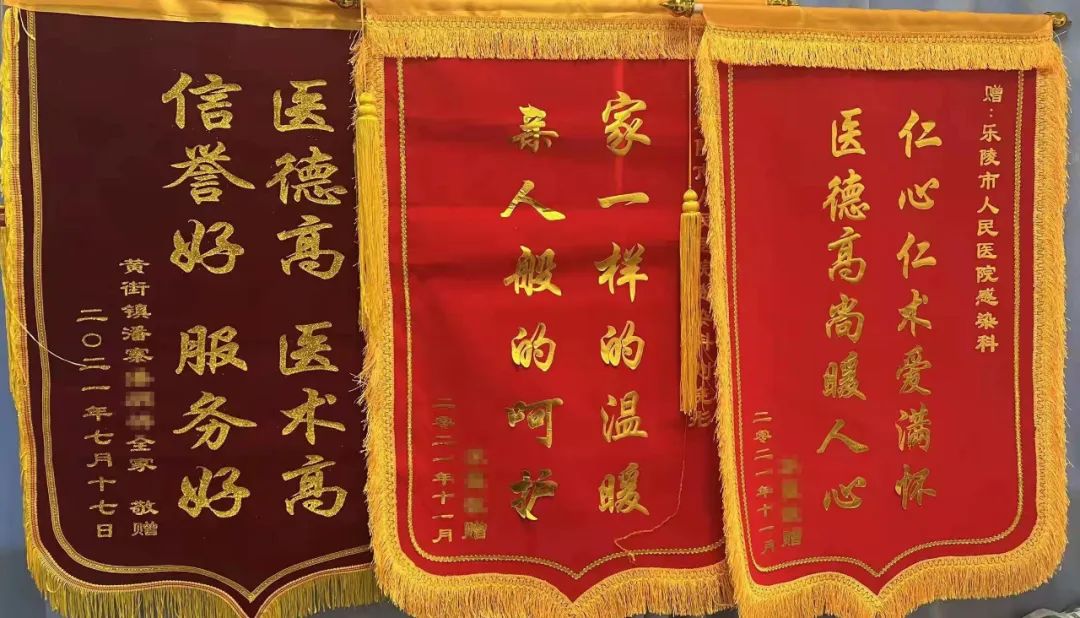 医德高 医术高
信誉好 服务好
黄街镇潘寨
全家 敬赠
二〇二一年七月十七日
家一样的温暖
亲人般的呵护
赠
二零二一年十一月
赠:乐陵市人民医院感染科
仁心仁术爱满怀
医德高尚暖人心
赠
二零二一年十一月